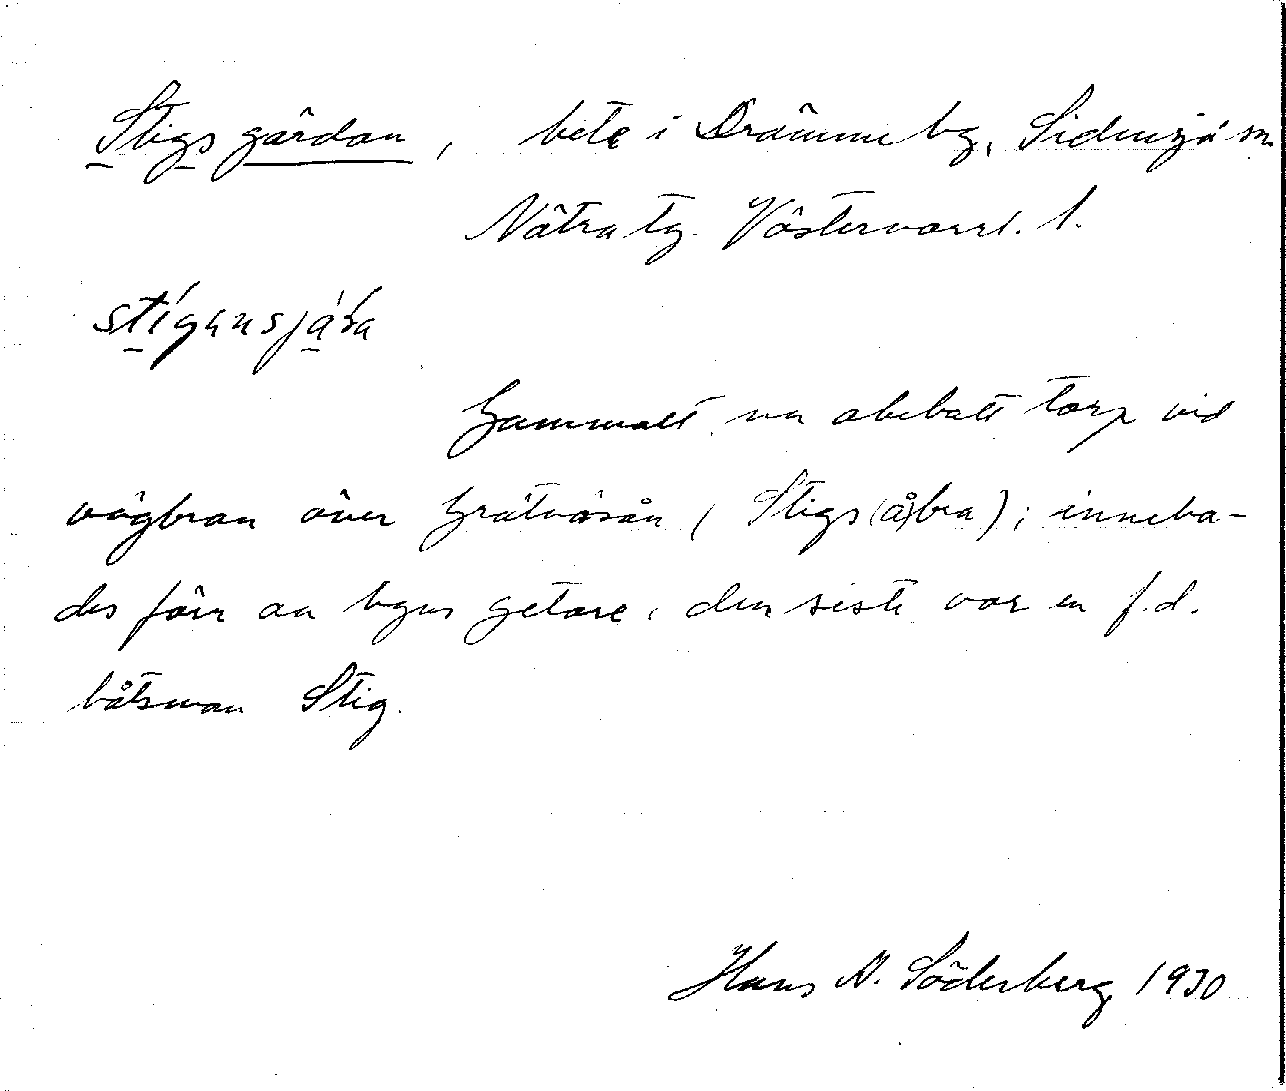 Stigsgärdan, bete i Drömme by, Sidensjö sn
Nätra tg. Västernorrl. l.
Gammalt, nu obebott torp vid
vägbron över Gråtvåsån (Stigs(å)bra); inneha-
des förr av byns getare, den siste var en f.d.
båtsman Stig.
Hans N. Söderberg, 1930